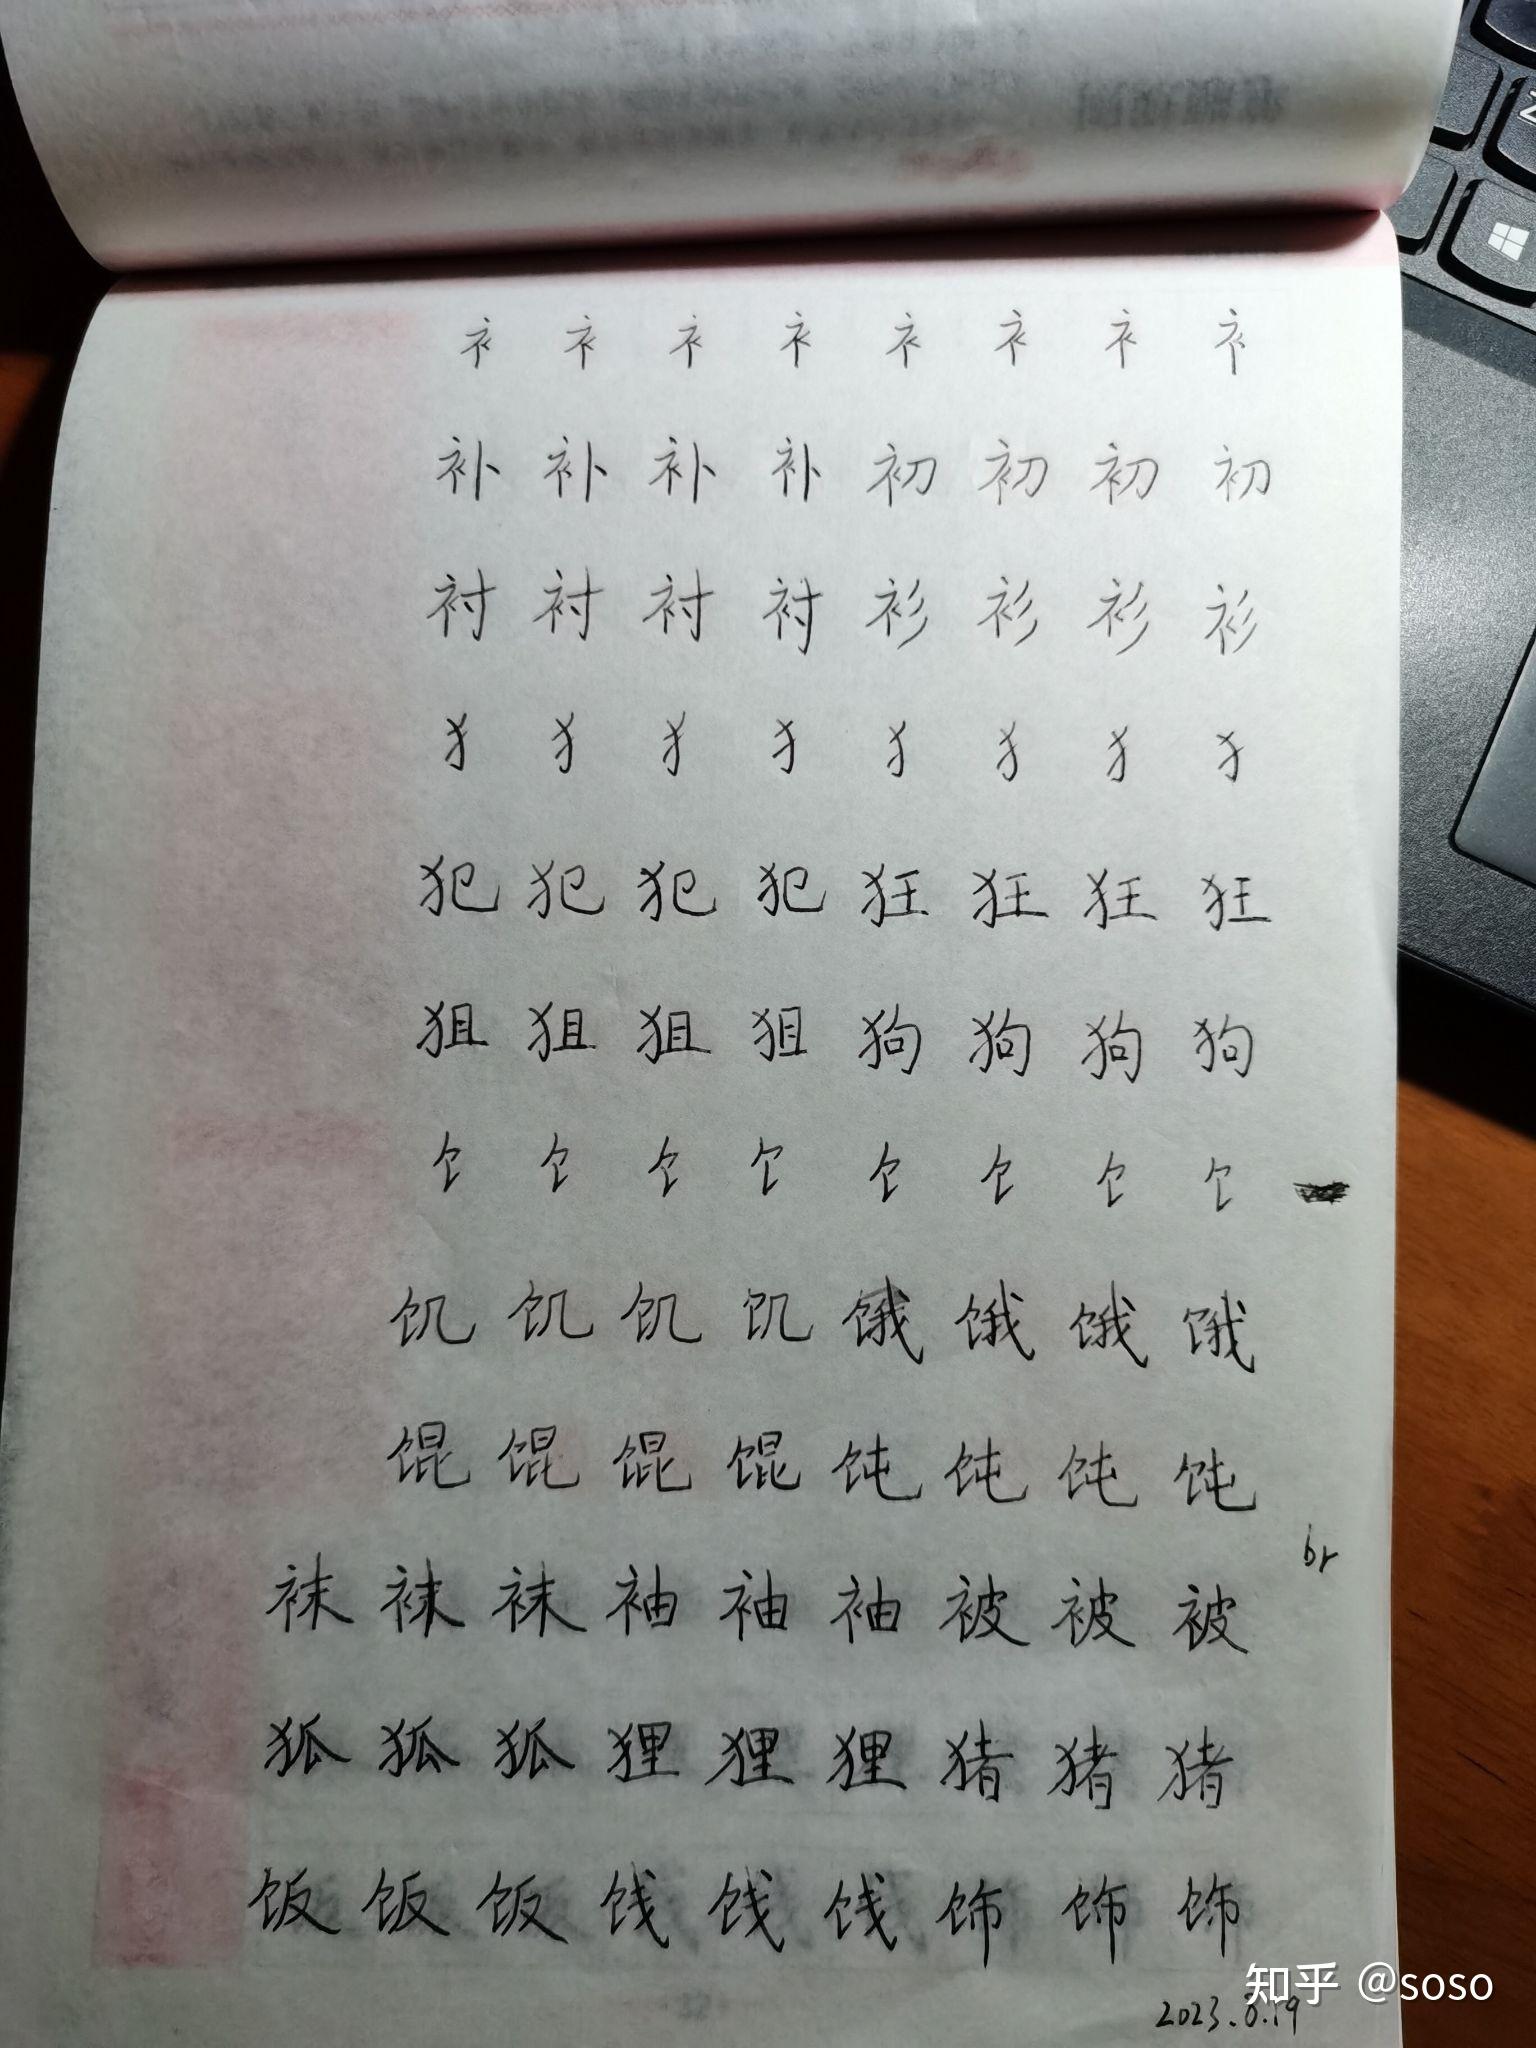 衤 衤 衤 衤 衤 衤 衤 衤
补 补 补 补 初 初 初 初
衬 衬 衬 衬 衫 衫 衫 衫
犭 犭 犭 犭 犭 犭 犭 犭
犯 犯 犯 犯 狂 狂 狂 狂
狙 狙 狙 狙 狗 狗 狗 狗
饣 饣 饣 饣 饣 饣 饣 饣
饥 饥 饥 饥 饿 饿 饿 饿
馄 馄 馄 馄 饨 饨 饨 饨
br
袜 袜 袜 袖 袖 袖 被 被 被
狐 狐 狐 狸 狸 狸 猪 猪 猪
饭 饭 饭 饯 饯 饯 饰 饰 饰
32
知乎 @soso
2023.8.19